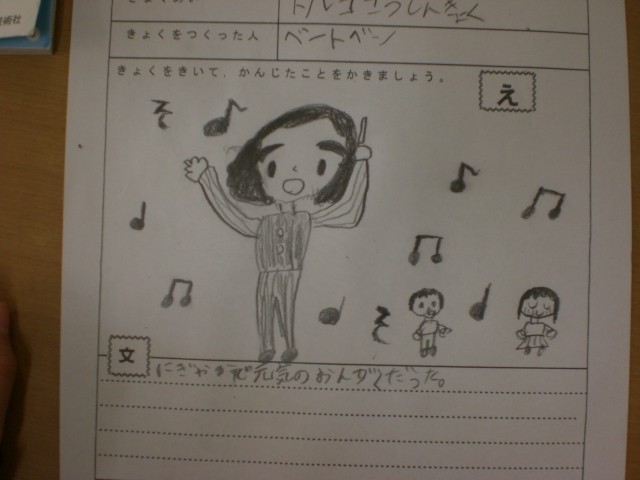 術社
トルコこうしんきょく
きょくをつくった人
ベートベン
きょくをきいて、かんじたことをかきましょう。
え
文
にぎやかで元気のおんがくだった。